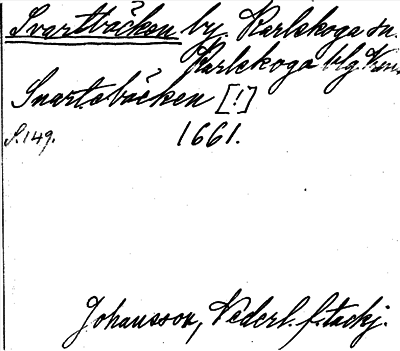 Svartbäcken by. Karlskoga sn.
Karlskoga blg.
Snartebäcken [!]
S. 149. 1661.
Johansson, Nederl. f. tackj.